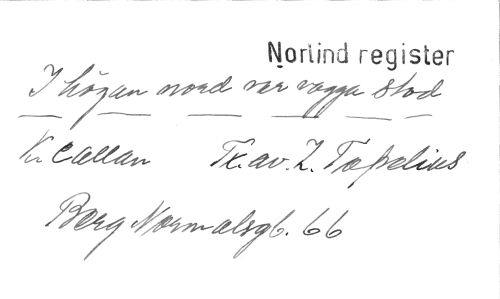 Norlind register
I högan nord vår vagga stod
K. Callan Tx. av. Z. Topelius
Berg Normalsgb. 66